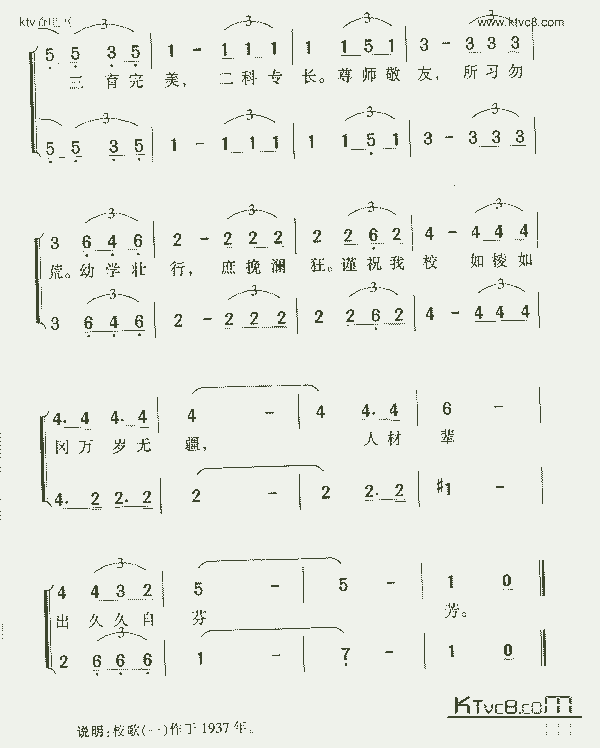 www.ktvc8.com
5 5 3 5 | 1 - 1 1 1 | 1 1 5 1 | 3 - 3 3 3
三 育 完 美， 二 科 专 长。尊 师 敬 友， 所 习 勿
5 5 3 5 | 1 - 1 1 1 | 1 1 5 1 | 3 - 3 3 3
3 6 4 6 | 2 - 2 2 2 | 2 2 6 2 | 4 - 4 4 4
荒。幼 学 壮 行， 庶 挽 澜 狂。谨 祝 我 校 如 陵 如
3 6 4 6 | 2 - 2 2 2 | 2 2 6 2 | 4 - 4 4 4
4. 4 4. 4 | 4 - | 4 4. 4 | 6 -
冈 万 岁 无 疆， 人 材 辈
4. 2 2. 2 | 2 - | 2 2. 2 | #1 -
4 4 3 2 | 5 - | 5 - | 1 0
出 久 久 自 芬 芳。
2 6 6 6 | 1 - | 7 - | 1 0
KTvc8.com
说明：校歌(一)作于1937年。